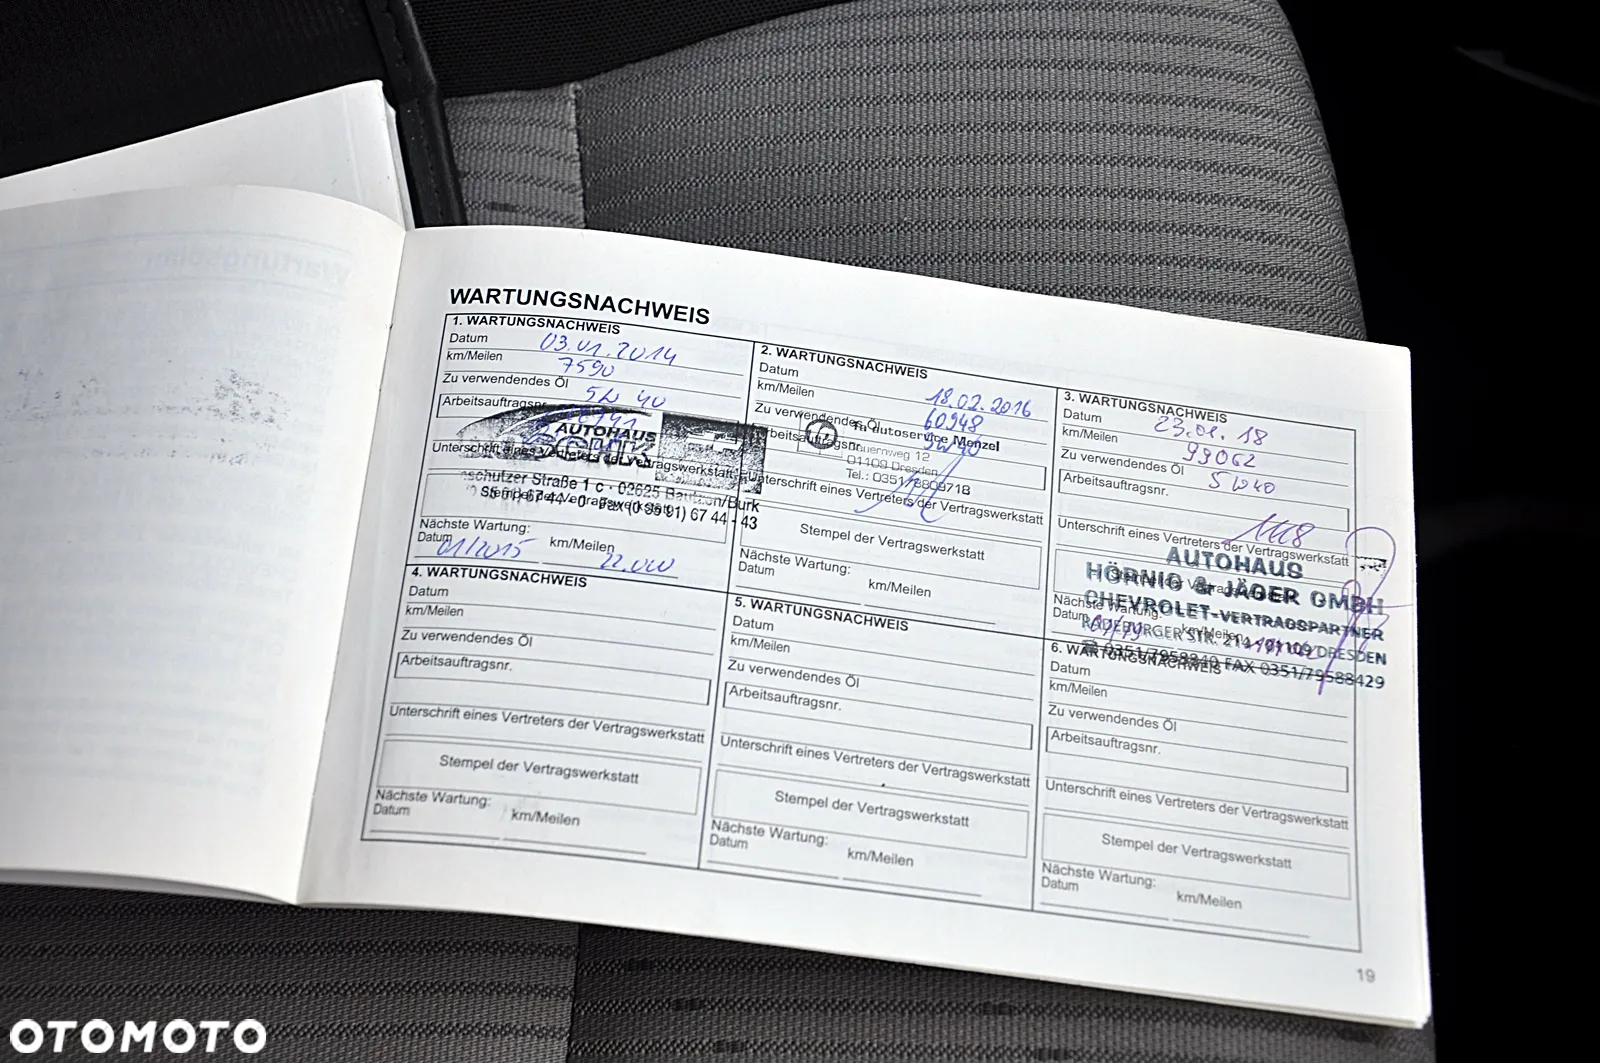 WARTUNGSNACHWEIS
1. WARTUNGSNACHWEIS
Datum 03.01.2014
km/Meilen 7590
Zu verwendendes Öl 5W 40
Arbeitsauftragsnr.
AUTOHAUS
Unterschrift eines Vertreters der Vertragswerkstatt
Straße 1 c · 02625 Bautzen/Burk
Stempel der Vertragswerkstatt
67 44 - 0 · Fax (0 35 91) 67 44 - 43
Nächste Wartung:
Datum 01/2015 km/Meilen 22.000
2. WARTUNGSNACHWEIS
Datum 18.02.2016
km/Meilen 60948
Zu verwendendes Öl 5W40
Arbeitsauftragsnr.
autoservice Menzel
12
01109 Dresden
Tel.: 0351/8809718
Unterschrift eines Vertreters der Vertragswerkstatt
Stempel der Vertragswerkstatt
Nächste Wartung:
Datum km/Meilen
3. WARTUNGSNACHWEIS
Datum 23.01.18
km/Meilen 99062
Zu verwendendes Öl 5W40
Arbeitsauftragsnr.
1118
Unterschrift eines Vertreters der Vertragswerkstatt
AUTOHAUS
HÖRNIG & JÄGER GMBH
CHEVROLET-VERTRAGSPARTNER
RADEBURGER STR. 214 · 01109 DRESDEN
☎ 0351/7958840 FAX 0351/79588429
Nächste Wartung:
Datum km/Meilen
4. WARTUNGSNACHWEIS
Datum
km/Meilen
Zu verwendendes Öl
Arbeitsauftragsnr.
Unterschrift eines Vertreters der Vertragswerkstatt
Stempel der Vertragswerkstatt
Nächste Wartung:
Datum km/Meilen
5. WARTUNGSNACHWEIS
Datum
km/Meilen
Zu verwendendes Öl
Arbeitsauftragsnr.
Unterschrift eines Vertreters der Vertragswerkstatt
Stempel der Vertragswerkstatt
Nächste Wartung:
Datum km/Meilen
6. WARTUNGSNACHWEIS
Datum
km/Meilen
Zu verwendendes Öl
Arbeitsauftragsnr.
Unterschrift eines Vertreters der Vertragswerkstatt
Stempel der Vertragswerkstatt
Nächste Wartung:
Datum km/Meilen
19
OTOMOTO